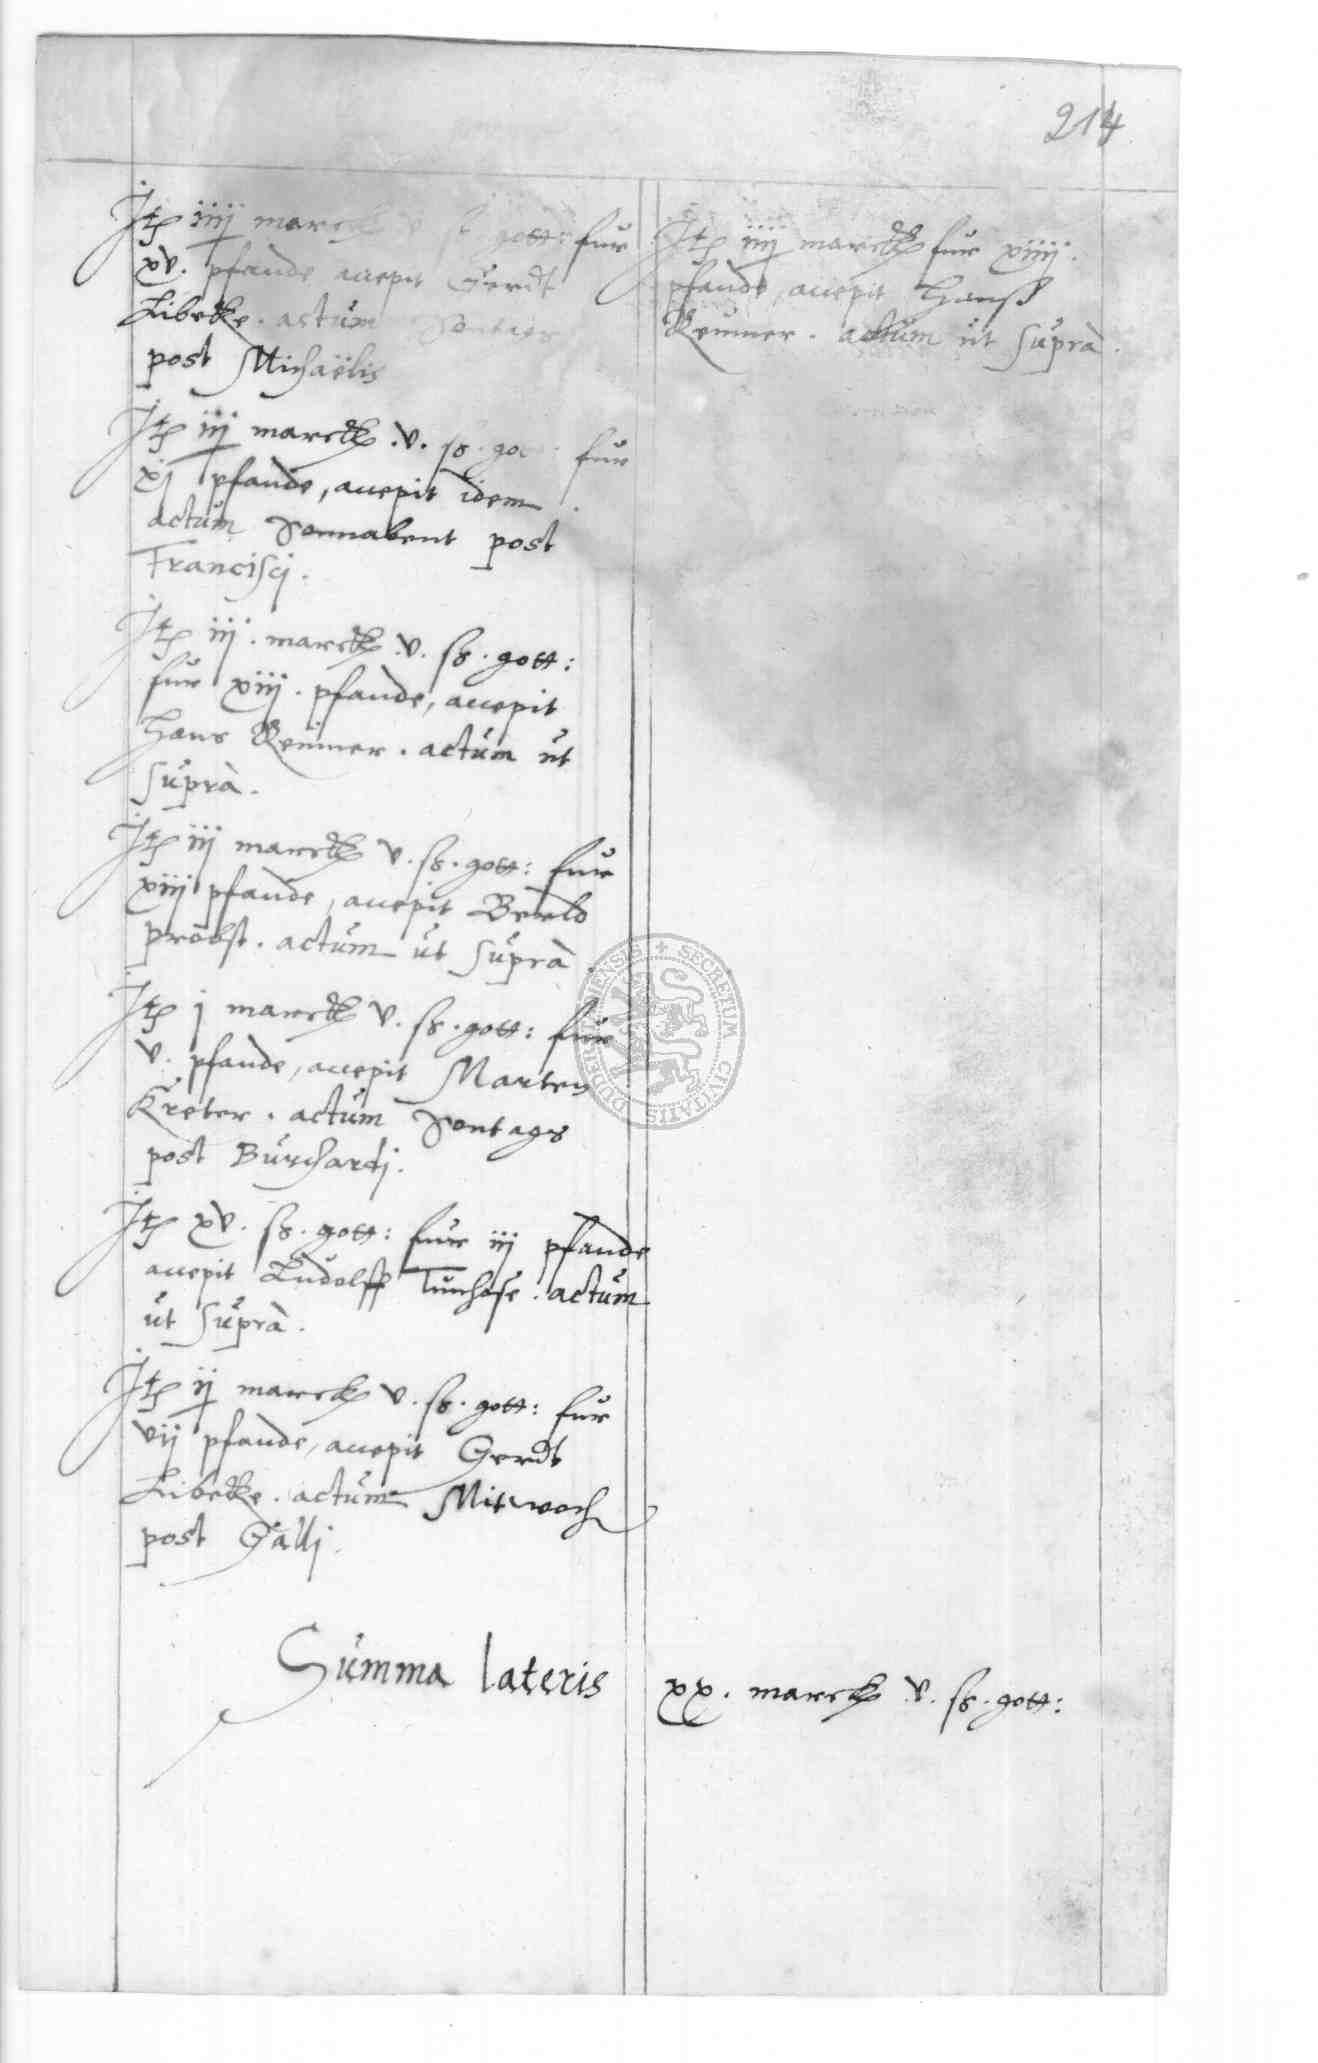 214
Jt͠ iiij marck v ß gott: fur
xv. pfande accepit Gerdt
Libeke. actum Sontags
post Michaëlis
Jt͠ iij marck .v. ß. go fur
xj pfande, accepit idem.
actum Sonnabent post
Franciscj.
Jt͠ iij. marck .v. ß. gott:
fur xiij. pfande, accepit
Hans Remmer. actum ut
suprà.
Jt͠ iij marck v. ß. gott: fur
xiij pfande, accepit Berld
probst. actum ut suprà.
Jt͠ j marck v. ß. gott: fur
v. pfande, accepit Marten
Kreter. actum Sontags
post Burchardj.
Jt͠ xv. ß. gott: fur iij pfande
accepit Ludolff Tunhose. actum
ut suprà.
Jt͠ ij marck v. ß. gott: fur
vij pfande, accepit Gerdt
Libeke. actum Mitwoch
post Gallj.
Jt͠ iiij marck fur xiiij.
pfande, accepit Hanß
Remmer. actum ut suprà.
Summa lateris xx. marck .v. ß. gott:
SECRETUM CIVITATIS DUDERSTATENSIS